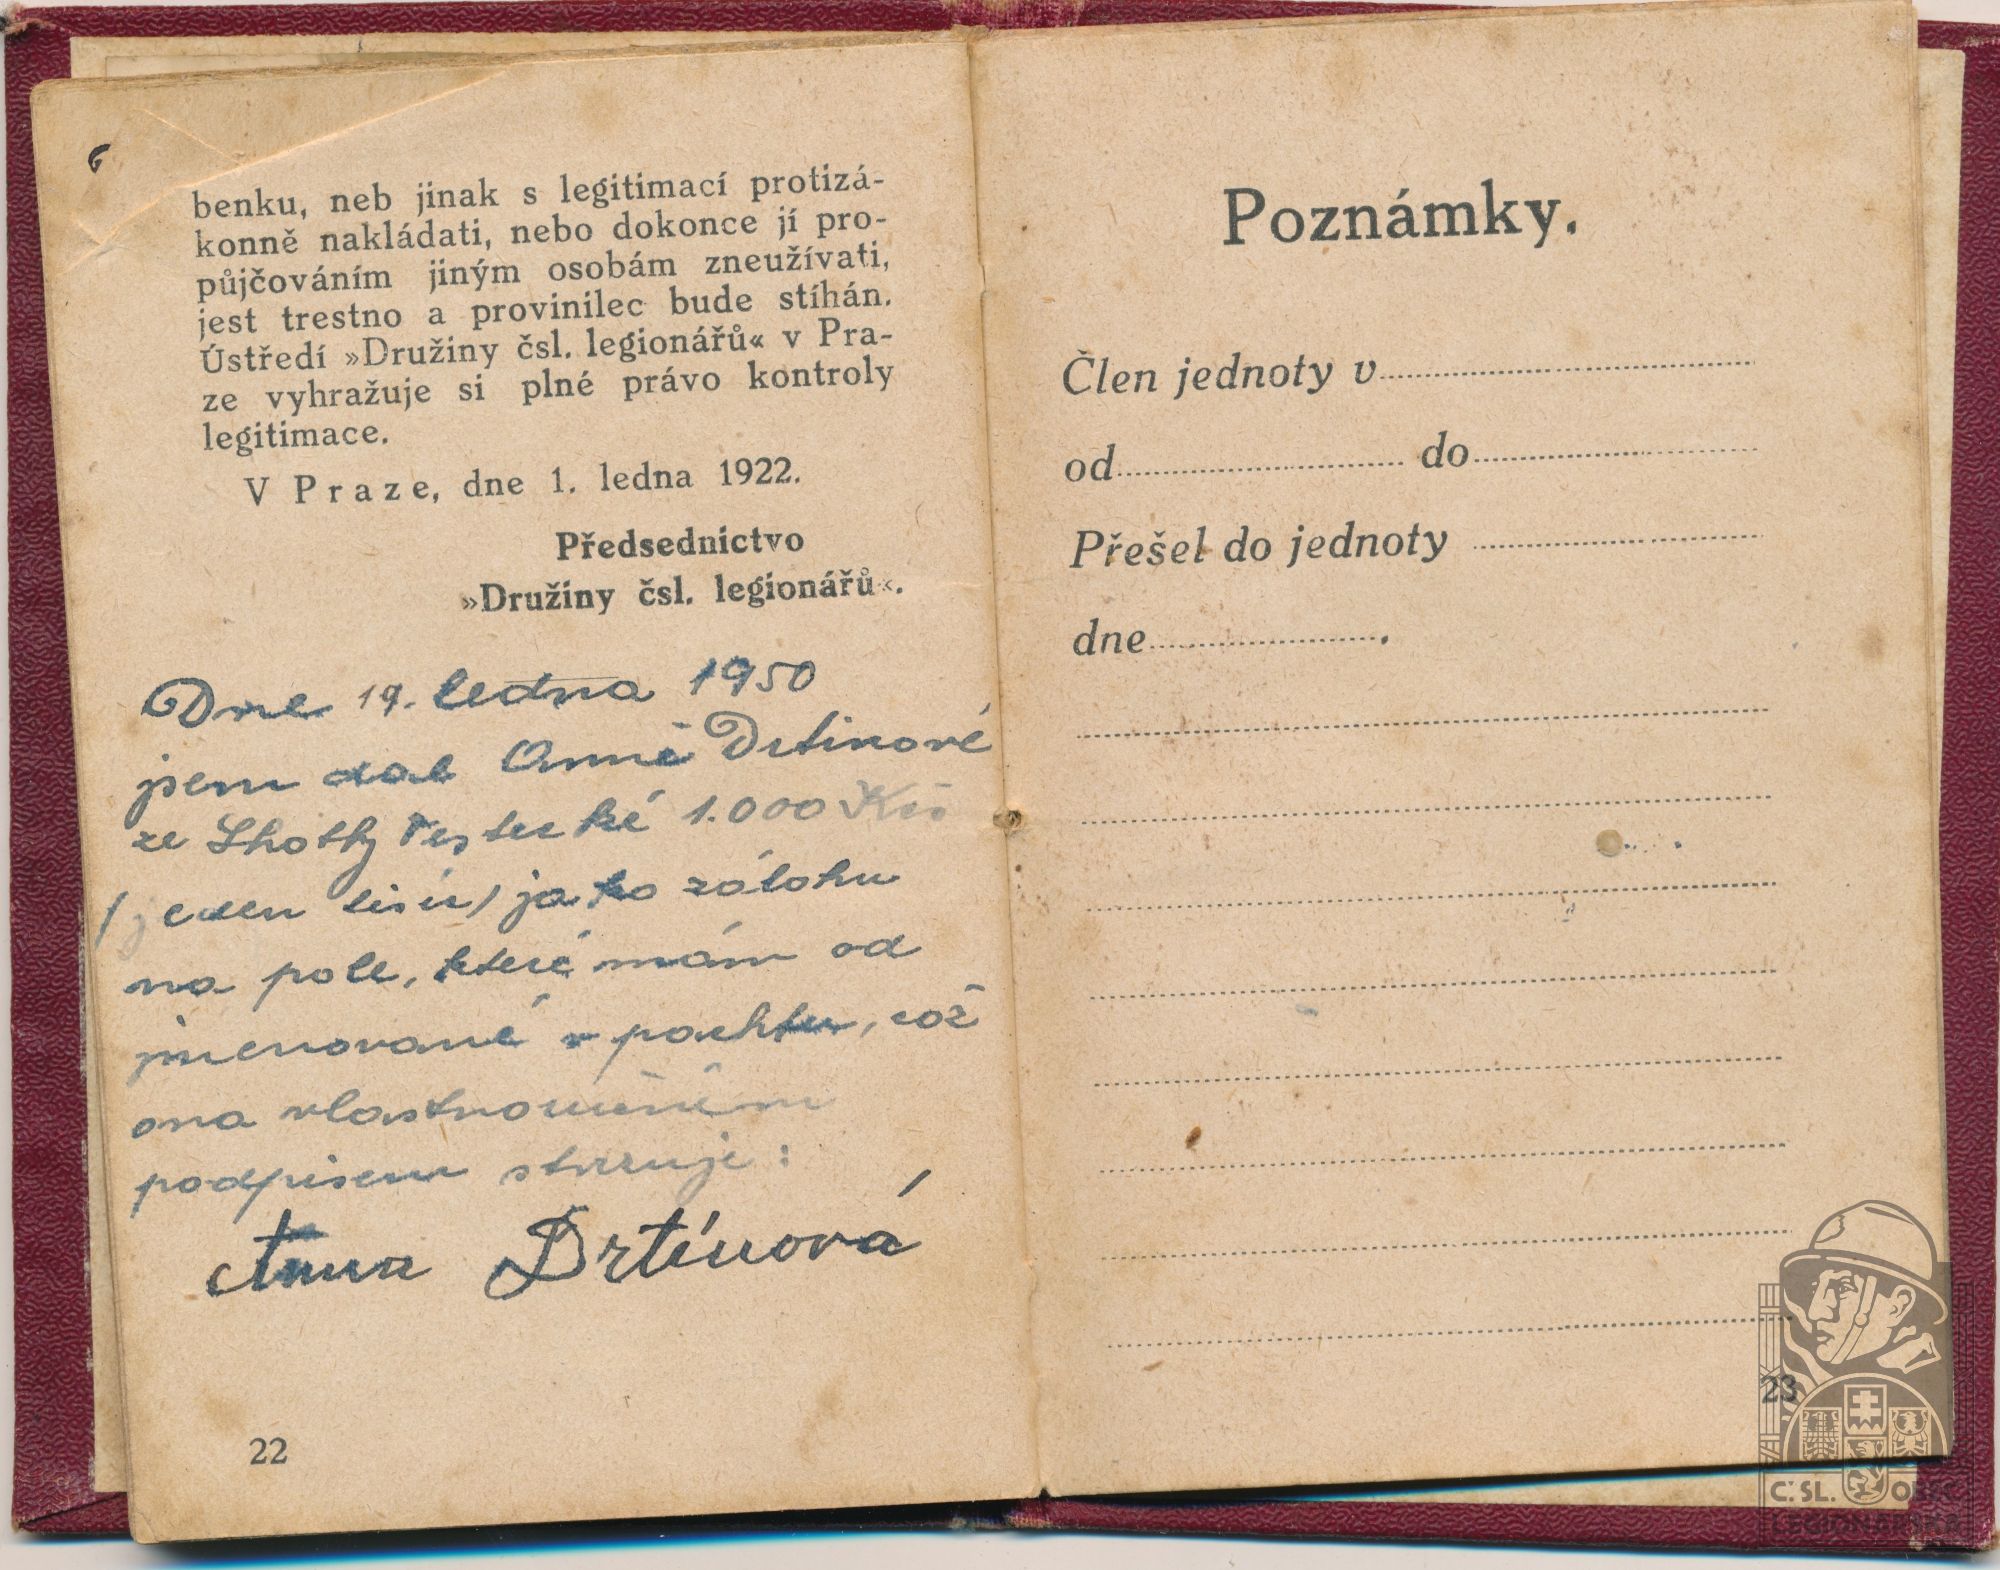 benku, neb jinak s legitimací protizá-
konně nakládati, nebo dokonce jí pro-
půjčováním jiným osobám zneužívati,
jest trestno a provinilec bude stíhán.
Ústředí »Družiny čsl. legionářů« v Pra-
ze vyhražuje si plné právo kontroly
legitimace.
V Praze, dne 1. ledna 1922.
Předsednictvo
»Družiny čsl. legionářů«.
Dne 19. ledna 1950
jsem dal Anně Drtinové
ze Lhotky 1.000 Kčs
/jeden tisíc/ jako zálohu
na pole, které mám od
jmenované v pachtu, což
ona vlastnoručním
podpisem stvrzuje:
Anna Drtinová
22
Poznámky.
Člen jednoty v
od do
Přešel do jednoty
dne .
23
Č.SL. OBEC
LEGIONÁŘSKÁ